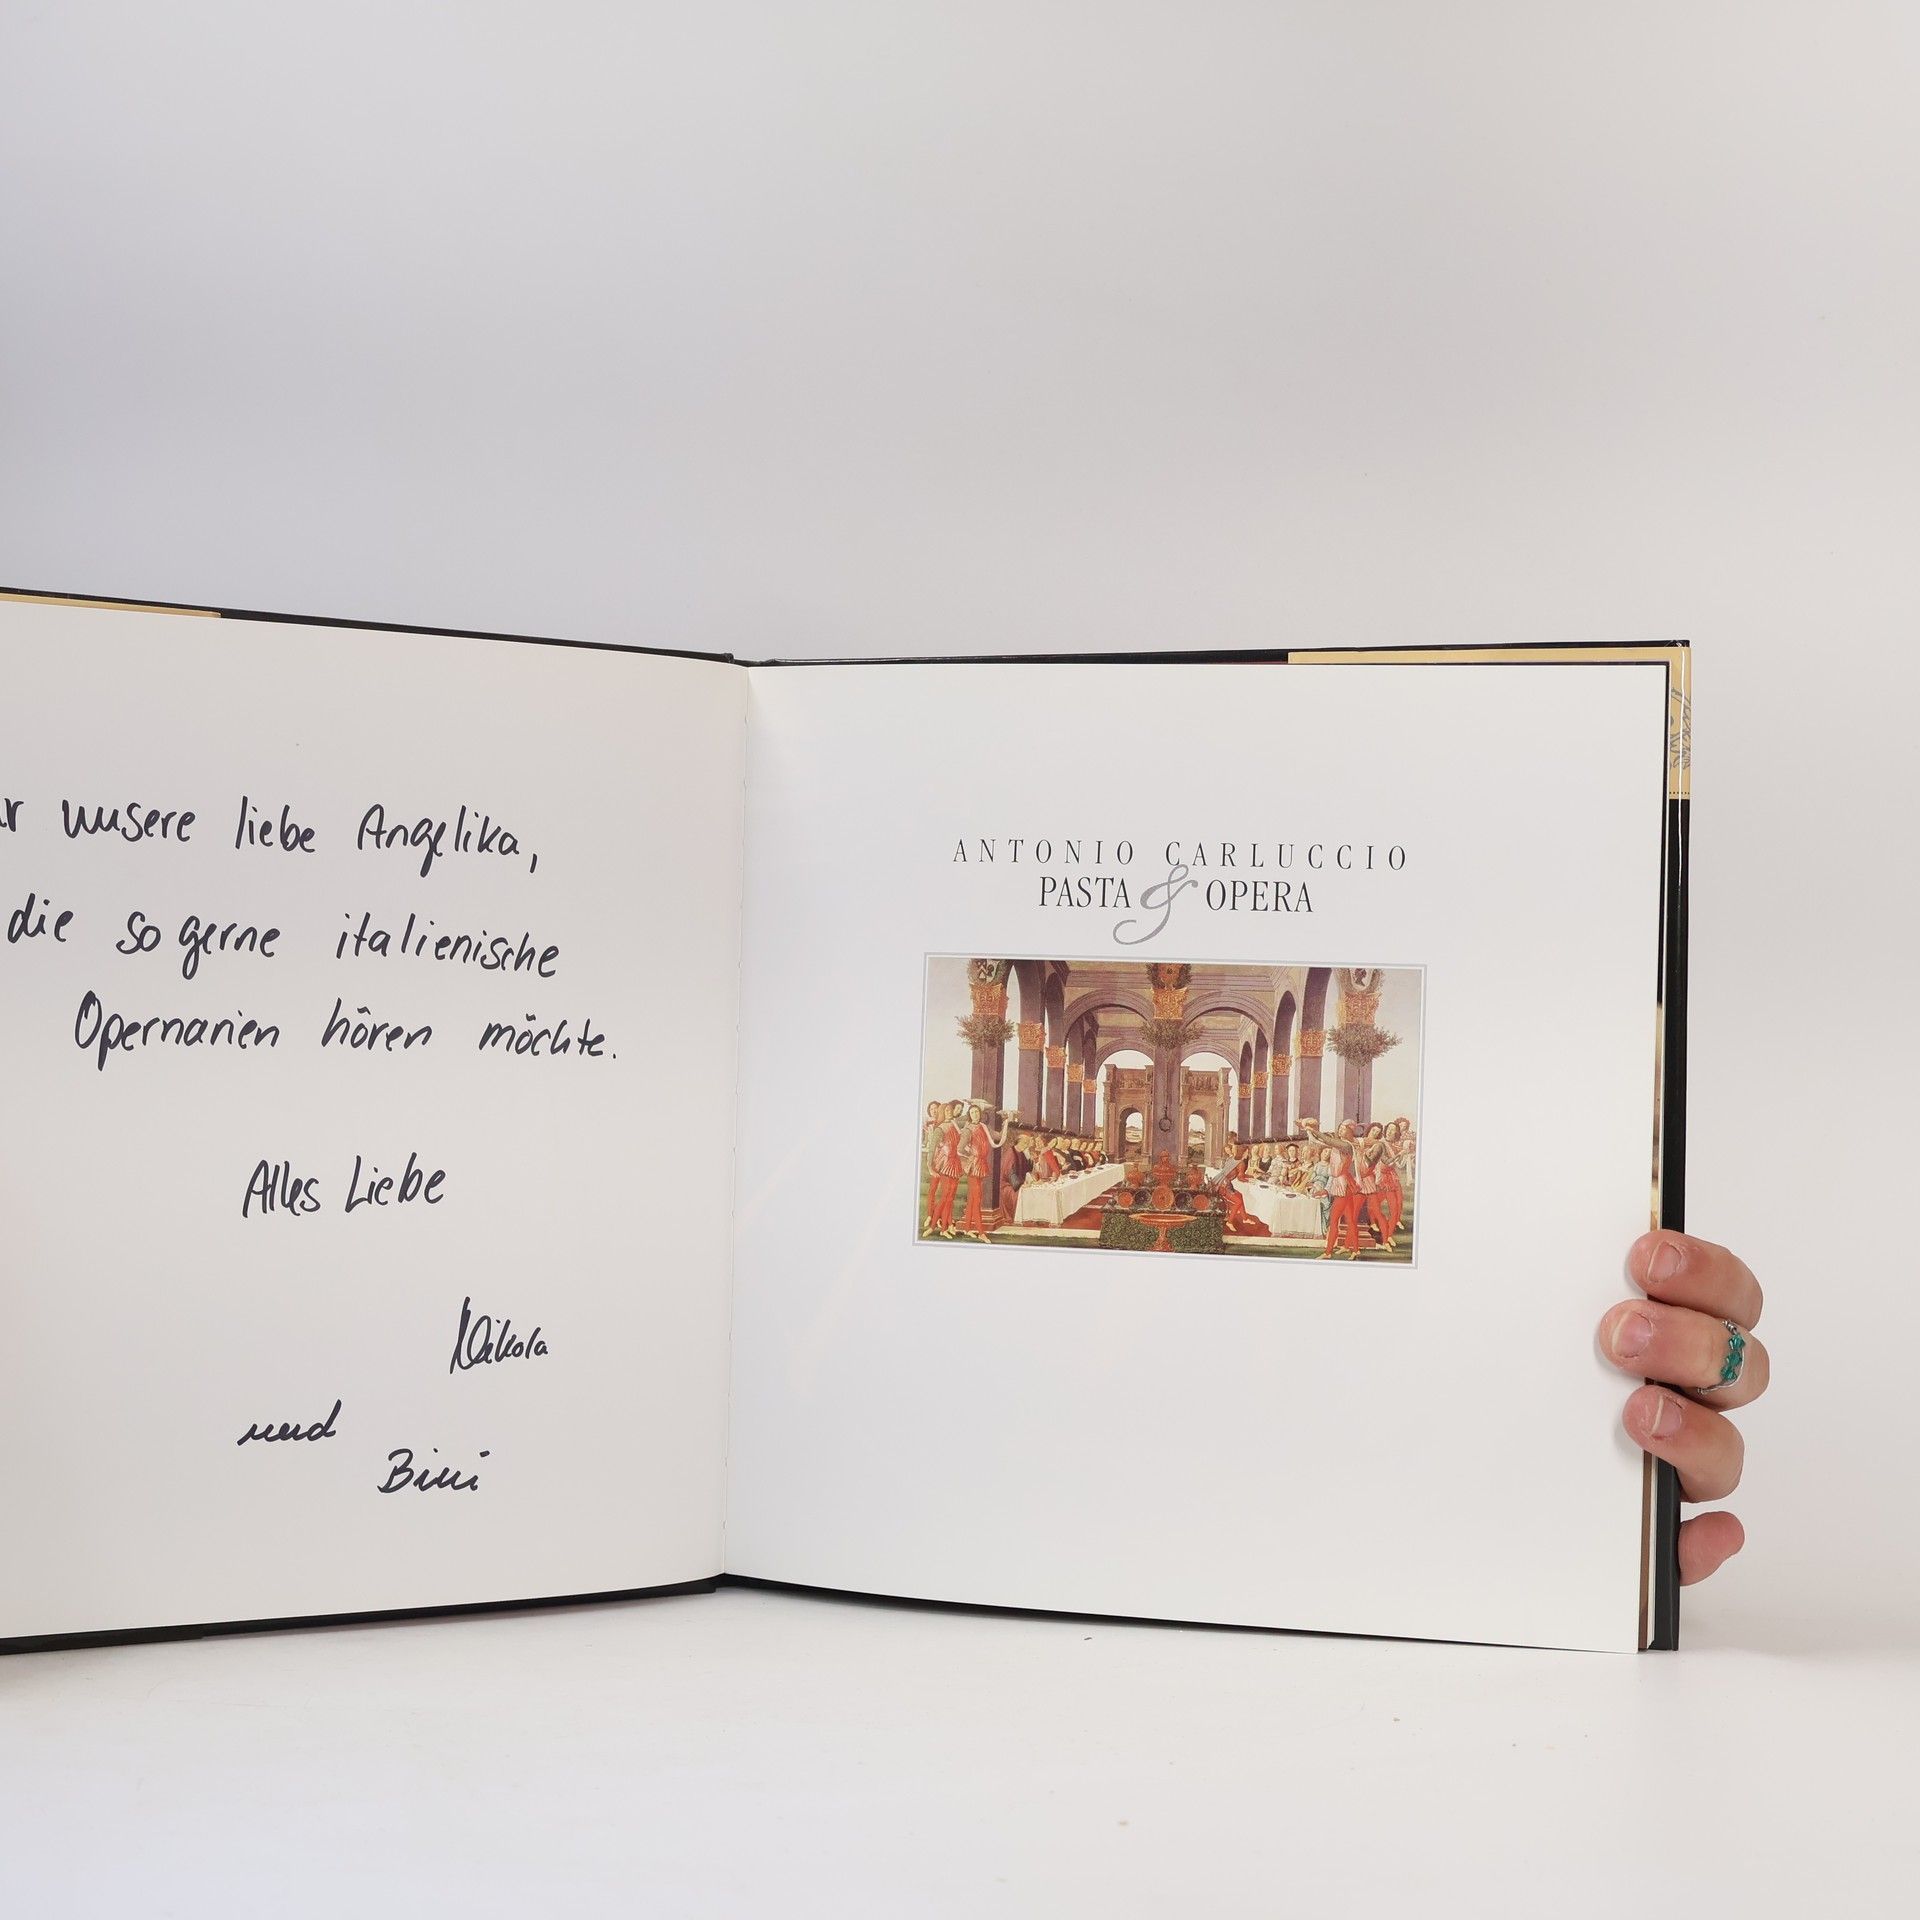 unsere liebe Angelika,
die so gerne italienische
Opernarien hören möchte.
Alles Liebe
Nikola
und
Bini
ANTONIO CARLUCCIO
PASTA & OPERA